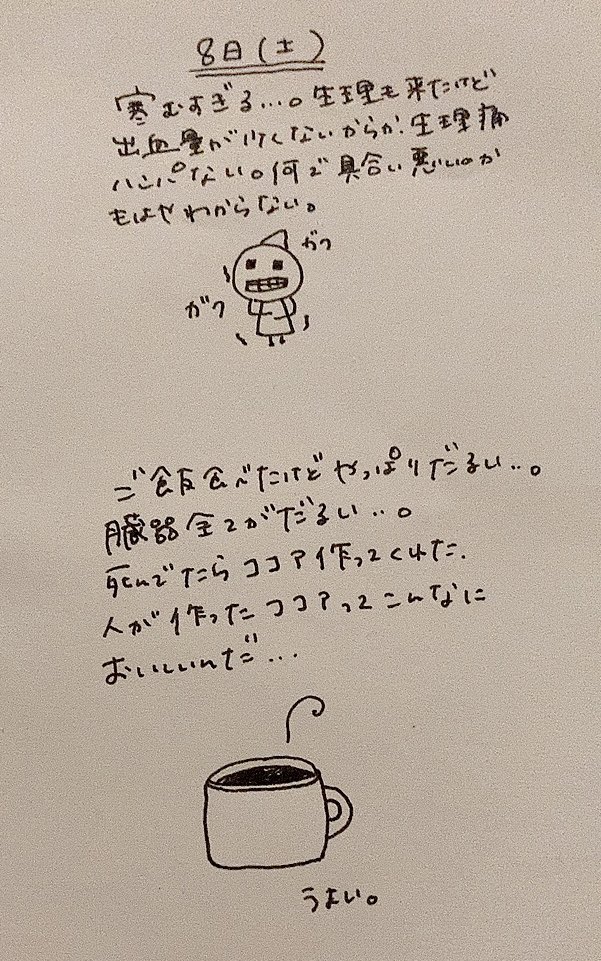 8日(土)
寒むすぎる...。生理も来たけど
出血量が少くないからか、生理痛
ハンパない。何で具合い悪いのか
もはやわからない。
ガク
ガク
ご飯食べたけどやっぱりだるい..。
臓器全てがだるい..。
死んでたらココア作ってくれた.
人が作ったココアってこんなに
おいしいんだ...
うまい。